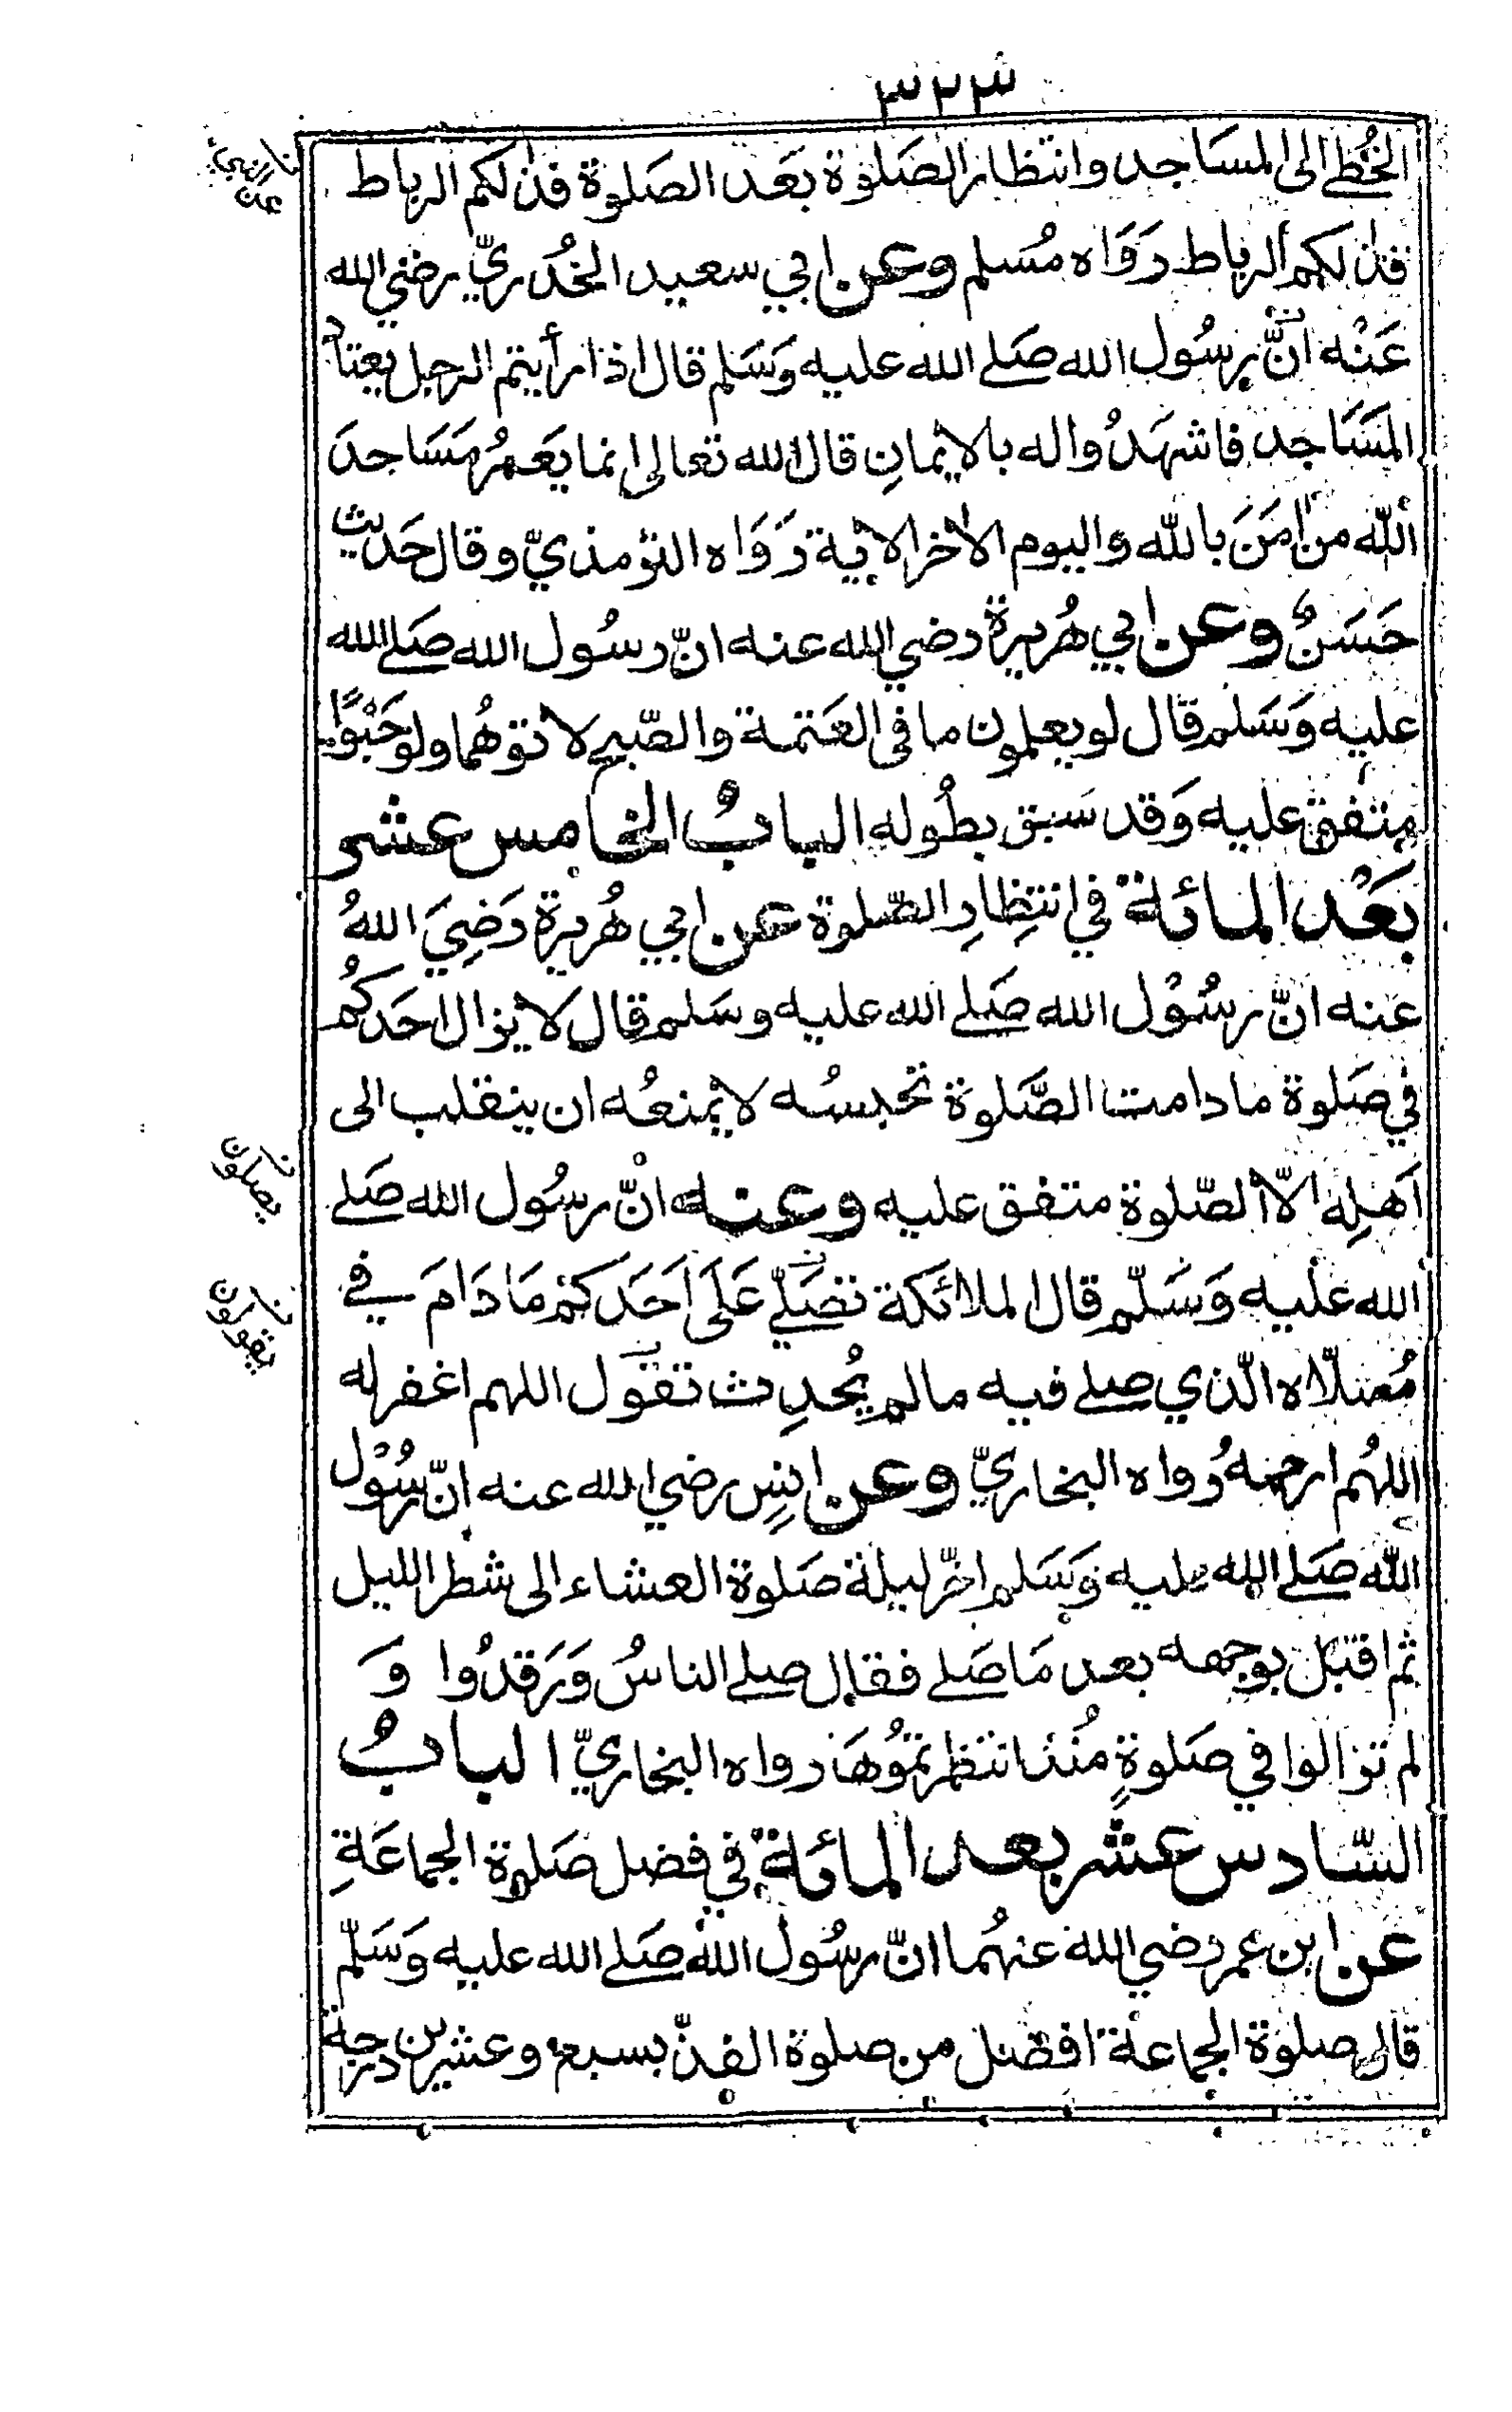 ٣٢٣
الخُطٰى الى المسَاجد وانتظار الصَلٰوة بعَد الصَلٰوة فذٰلكم الرباط
فذٰلكم الرباط رَوَاه مُسلم وعن ابي سعيد الخُدريّ رضي الله
عَنْه انّ رسُول الله صَلے الله عليه وَسَلم قال اذا رأيتم الرجل يعتاد
المسَاجد فاشهَدُوا له بالايمانِ قال الله تعالى انما يَعمرُ مَسَاجدَ
الله من اٰمَنَ بالله واليوم الاٰخر الاٰية رَوَاه الترمذيّ وقال حَديث
حَسَنٌ وعن ابي هُريرة رضي الله عنه انّ رسُول الله صَلے الله
عليه وَسَلم قال لو يعلمون ما فى العَتمة والصّبح لاتوهُما ولو حَبْوًا
متفق عليه وَقد سَبق بطُوله البابُ الخامس عشر
بَعْد المائة في انتِظارِ الصّلٰوة عن ابي هُريرة رَضِيَ اللهُ
عنه انّ رسُوْل الله صَلے الله عليه وسَلم قال لا يزال احَدكُم
في صَلٰوة ما دامت الصَّلٰوة تحبسُه لا يمنعُه ان ينقلب الى
اَهلِهٖ الّا الصّلٰوة متفق عليه وعنه انّ رسُول الله صَلے
الله عَليه وَسَلّم قال الملائكة تصَلّي عَلَى اَحَدكم مَا دَامَ في
مُصَلّاه الّذي صلے فيه ما لم يُحدِث تقول اللهم اغفر له
اللهُم ارحمْهُ رواه البخاريّ وعن انسٍ رضي الله عنه انّ رسُوْل
الله صَلے الله عليه وَسَلم اخّر ليلة صَلٰوة العشاء الى شطر الليل
ثم اقبَل بوجهه بعد مَا صَلے فقال صلے الناسُ وَرَقدُوا وَ
لم تزالوا في صَلٰوةٍ مُنْذ انتظرتمُوْهَا رواه البخاريّ البابُ
السّادس عشر بعد المائة في فضل صَلٰوة الجماعَةِ
عن ابن عمر رضي الله عنهُما انّ رسُول الله صَلے الله عليه وَسَلّم
قال صلٰوة الجماعة افضل من صلٰوة الفذّ بسبع وعشرين درجة
عن النبي
يصلون
يقولون